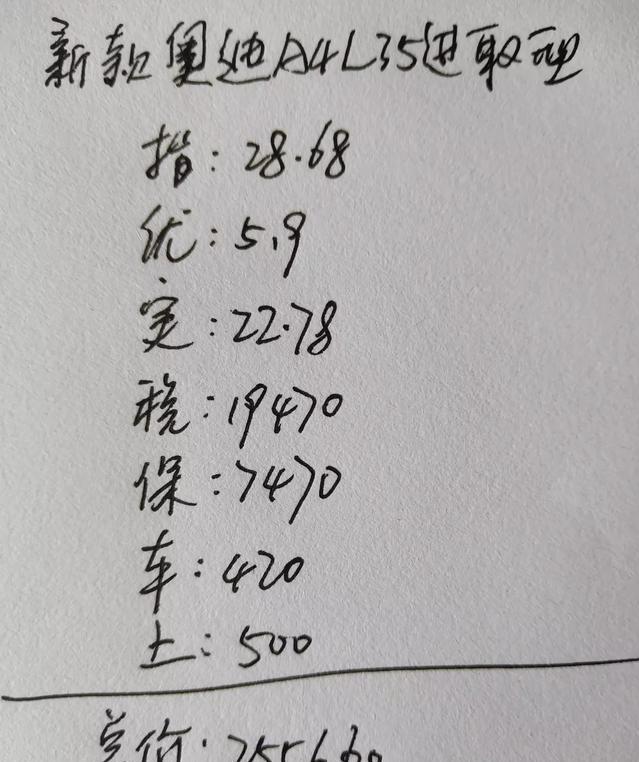 新款奥迪A4L35进取型
指:28.68
优:5.9
实:22.78
税:19470
保:7470
车:420
上:500
总价:255660